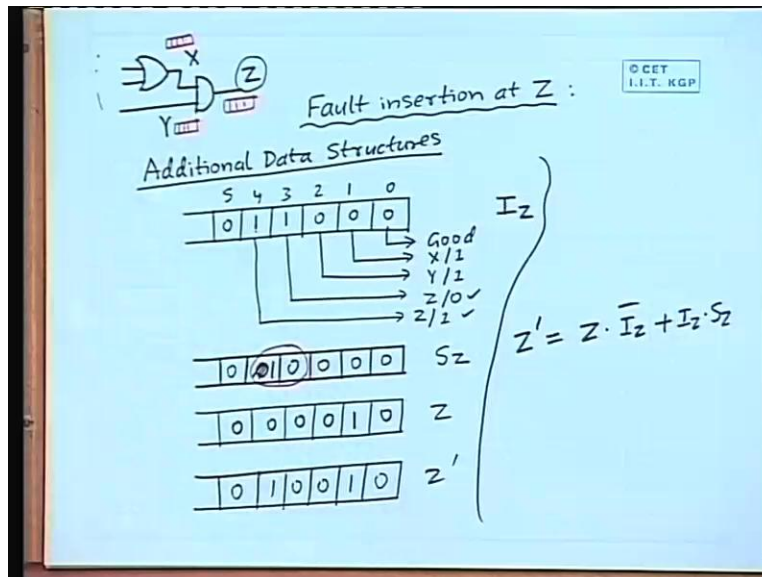 X
Z
Y
© CET
I.I.T. KGP
Fault insertion at Z :
Additional Data Structures
5 4 3 2 1 0
0 1 1 0 0 0 Iz
Good
X/1
Y/1
Z/0 ✓
Z/1 ✓
0 1 0 0 0 0 Sz
0 0 0 0 1 0 Z
0 1 0 0 1 0 Z'
Z' = Z · I̅z + Iz · Sz